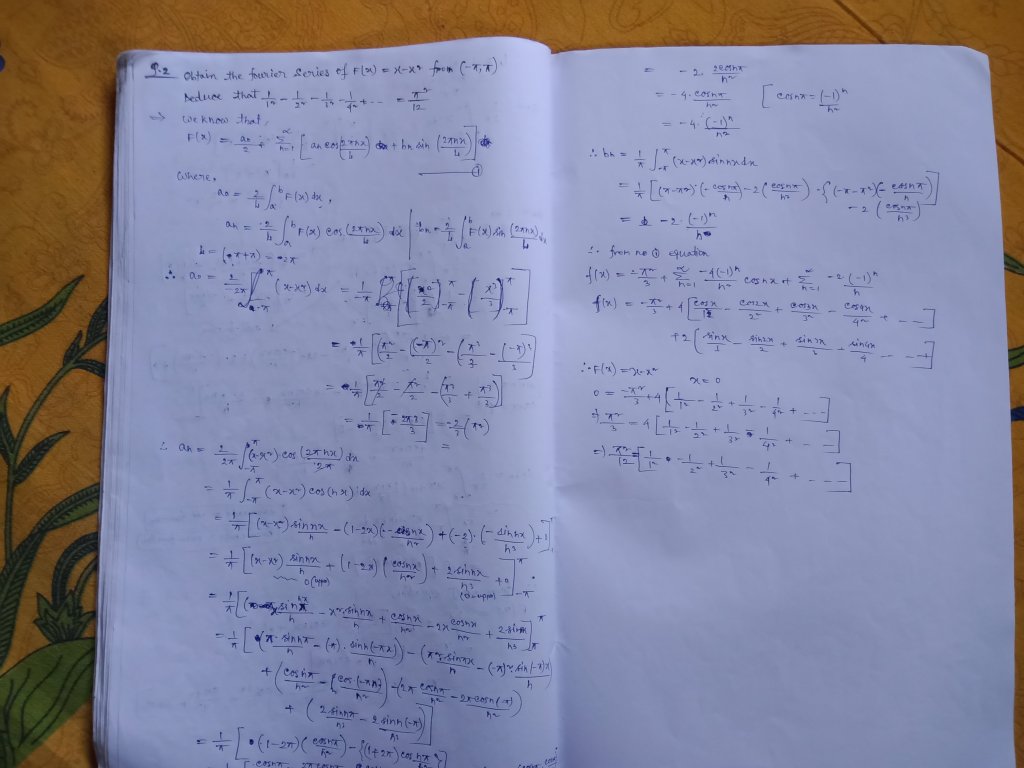 Q.2 Obtain the fourier series of F(x) = x-x² from (-π, π)
Deduce that 1/1² - 1/2² - 1/3² - 1/4² + ... = π²/12
⇒ We know that,
F(x) = a₀/2 + Σ_{n=1}^{∝} [an cos(2πnx/L) + bn sin(2πnx/L)] ①
Where,
a₀ = 2/L ∫_a^b F(x) dx,
an = 2/L ∫_a^b F(x) cos(2πnx/L) dx | bn = 2/L ∫_a^b F(x) sin(2πnx/L) dx
L = (π+π) = 2π
∴ a₀ = 2/2π ∫_{-π}^{π} (x-x²) dx = 1/π
= 1/π [π²/2 - (-π)²/2 - (π³/3 - (-π)³/3)]
= 1/π [π²/2 - π²/2 - (π³/3 + π³/3)]
= 1/π [2π³/3] = -2/3 (π²)
∴ an = 2/2π ∫_{-π}^{π} (x-x²) cos(2πnx/2π) dx
= 1/π ∫_{-π}^{π} (x-x²) cos(nx) dx
= 1/π [(x-x²) sinnx/n - (1-2x)(-cosnx/n²) + (-2).(-sinnx/n³)
= 1/π [(x-x²) sinnx/n + (1-2x)(cosnx/n²) + 2sinnx/n³ + 0]_{-π}
= 1/π sinnx/n - x² sinnx/n + cosnx/n² - 2x cosnx/n² + 2 sinnx/n³]
= 1/π [(π sinnπ/n - (π). sinn(-πx)/n) - (π² sinnπ/n - (-π)² sin(-πx)/n
+ (cosnπ/n² - {cos(-πn)/n²}) - (2π cosnπ/n² - 2π cosn(-π)/n²)
+ (2 sinnπ/n³ - 2 sinn(-π)/n³)]
= 1/π [(1-2π)(cosnπ/n²) - {(1+2π) cosnπ/n²}]
= -2. 2cosnπ/n²
= -4. cosnπ/n² [cosnπ = (-1)ⁿ/n²
= -4. (-1)ⁿ/n²
∴ bn = 1/π ∫_{-π}^{π} (x-x²) sinnx dx
= 1/π [(π-π²)(-cosnπ/n) - 2(cosnπ/n³) - {(-π-π²)(-cosnπ/n)}]
- 2 (cosnπ/n³)
= -2. (-1)ⁿ/n
∴ from no ① equation
f(x) = -π²/3 + Σ_{n=1}^{∝} -4(-1)ⁿ/n² cosnx + Σ_{n=1}^{∝} -2.(-1)ⁿ/n
f(x) = -π²/3 + 4 [cosx/1² - cos2x/2² + cos3x/3² - cos4x/4² + ---]
+ 2 [sinx/1 - sin2x/2 + sin3x/3 - sin4x/4 ---+]
∴ F(x) = x-x²
x = 0
0 = -π²/3 + 4 [1/1² - 1/2² + 1/3² - 1/4² + ---]
⇒ π²/3 = 4 [1/1² - 1/2² + 1/3² - 1/4² + ---]
⇒ π²/12 = [1/1² - 1/2² + 1/3² - 1/4² + ---]